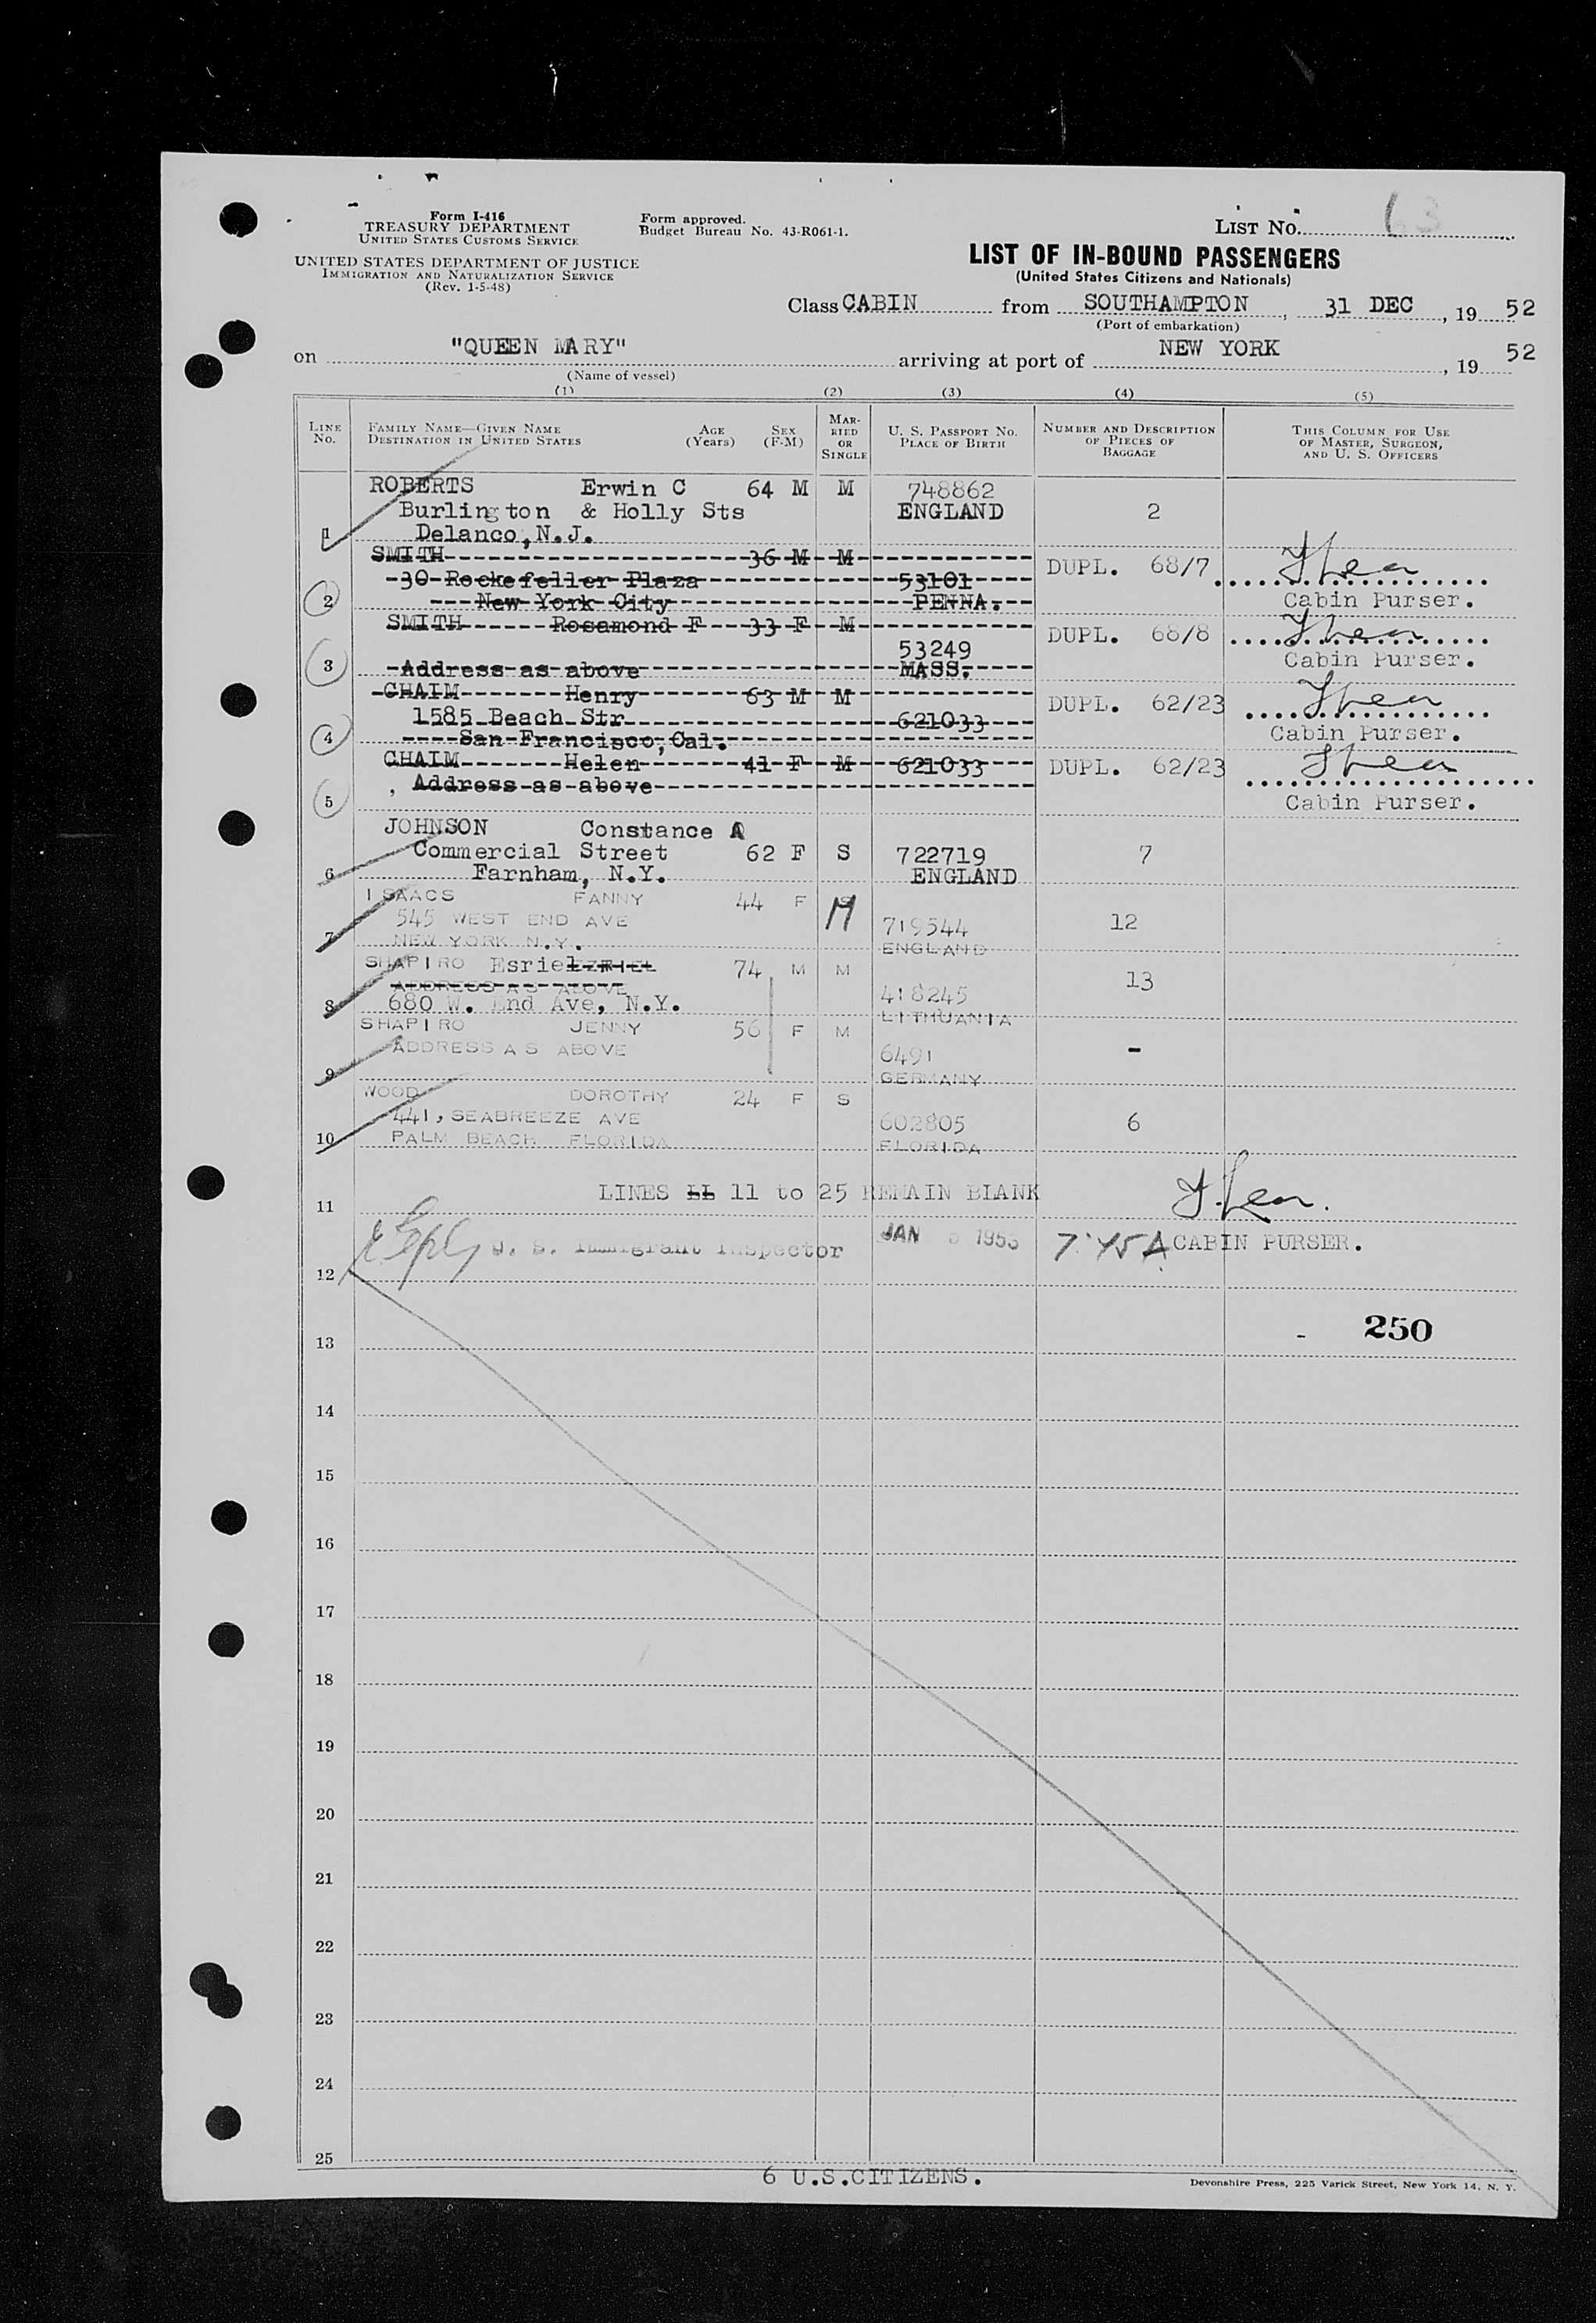 Form I-416
TREASURY DEPARTMENT
UNITED STATES CUSTOMS SERVICE
UNITED STATES DEPARTMENT OF JUSTICE
IMMIGRATION AND NATURALIZATION SERVICE
(Rev. 1-5-48)
Form approved.
Budget Bureau No. 43-R061-1.
LIST No. 63
LIST OF IN-BOUND PASSENGERS
(United States Citizens and Nationals)
Class CABIN from SOUTHAMPTON, 31 DEC, 19 52
(Port of embarkation)
on "QUEEN MARY" arriving at port of NEW YORK, 19 52
(Name of vessel)
(1) (2) (3) (4) (5)
LINE No. FAMILY NAME—GIVEN NAME DESTINATION IN UNITED STATES AGE (Years) SEX (F-M) MARRIED OR SINGLE U. S. PASSPORT No. PLACE OF BIRTH NUMBER AND DESCRIPTION OF PIECES OF BAGGAGE THIS COLUMN FOR USE OF MASTER, SURGEON, AND U. S. OFFICERS
ROBERTS Erwin C 64 M M 748862
Burlington & Holly Sts ENGLAND 2
1 Delanco, N.J.
SMITH 36 M M DUPL. 68/7
30 Rockefeller Plaza 53101
2 New York City PENNA. Cabin Purser.
SMITH Rosamond F 33 F M DUPL. 68/8
53249
3 Address as above MASS. Cabin Purser.
CHAIM Henry 63 M M DUPL. 62/23
1585 Beach Str 621033
4 San Francisco, Cal. Cabin Purser.
CHAIM Helen 41 F M 621033 DUPL. 62/23
Address as above
5 Cabin Purser.
JOHNSON Constance A
Commercial Street 62 F S 722719 7
6 Farnham, N.Y. ENGLAND
ISAACS FANNY 44 F M
545 WEST END AVE 719544 12
7 NEW YORK N.Y. ENGLAND
SHAPIRO Esriel EZRIEL 74 M M 13
ADDRESS AS ABOVE 418245
8 680 W. End Ave, N.Y. LITHUANIA
SHAPIRO JENNY 56 F M
ADDRESS AS ABOVE 6491 -
9 GERMANY
WOOD DOROTHY 24 F S
441, SEABREEZE AVE 602805 6
10 PALM BEACH FLORIDA FLORIDA
11 LINES LL 11 to 25 REMAIN BLANK
12 U. S. Immigrant Inspector JAN 5 1953 7:45A CABIN PURSER.
- 250
13
14
15
16
17
18
19
20
21
22
23
24
25
6 U.S.CITIZENS.
Devonshire Press, 225 Varick Street, New York 14, N. Y.